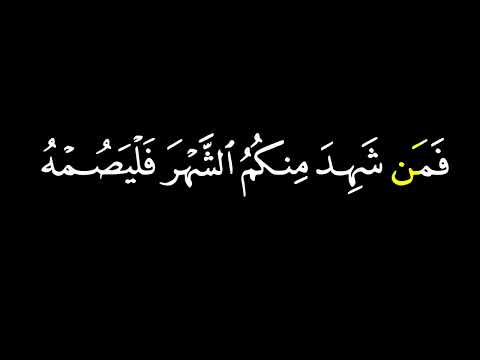 فَمَن شَهِدَ مِنكُمُ ٱلشَّهۡرَ فَلۡيَصُمۡهُ